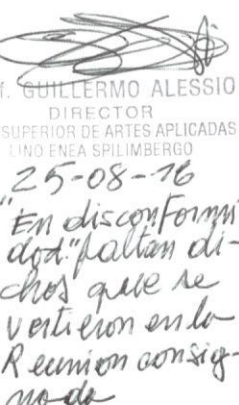 f. GUILLERMO ALESSIO
DIRECTOR
SUPERIOR DE ARTES APLICADAS
LINO ENEA SPILIMBERGO
25-08-16
"En disconformi
dad." faltan di-
chos que se
vertieron en la
Reunion consig-
nada